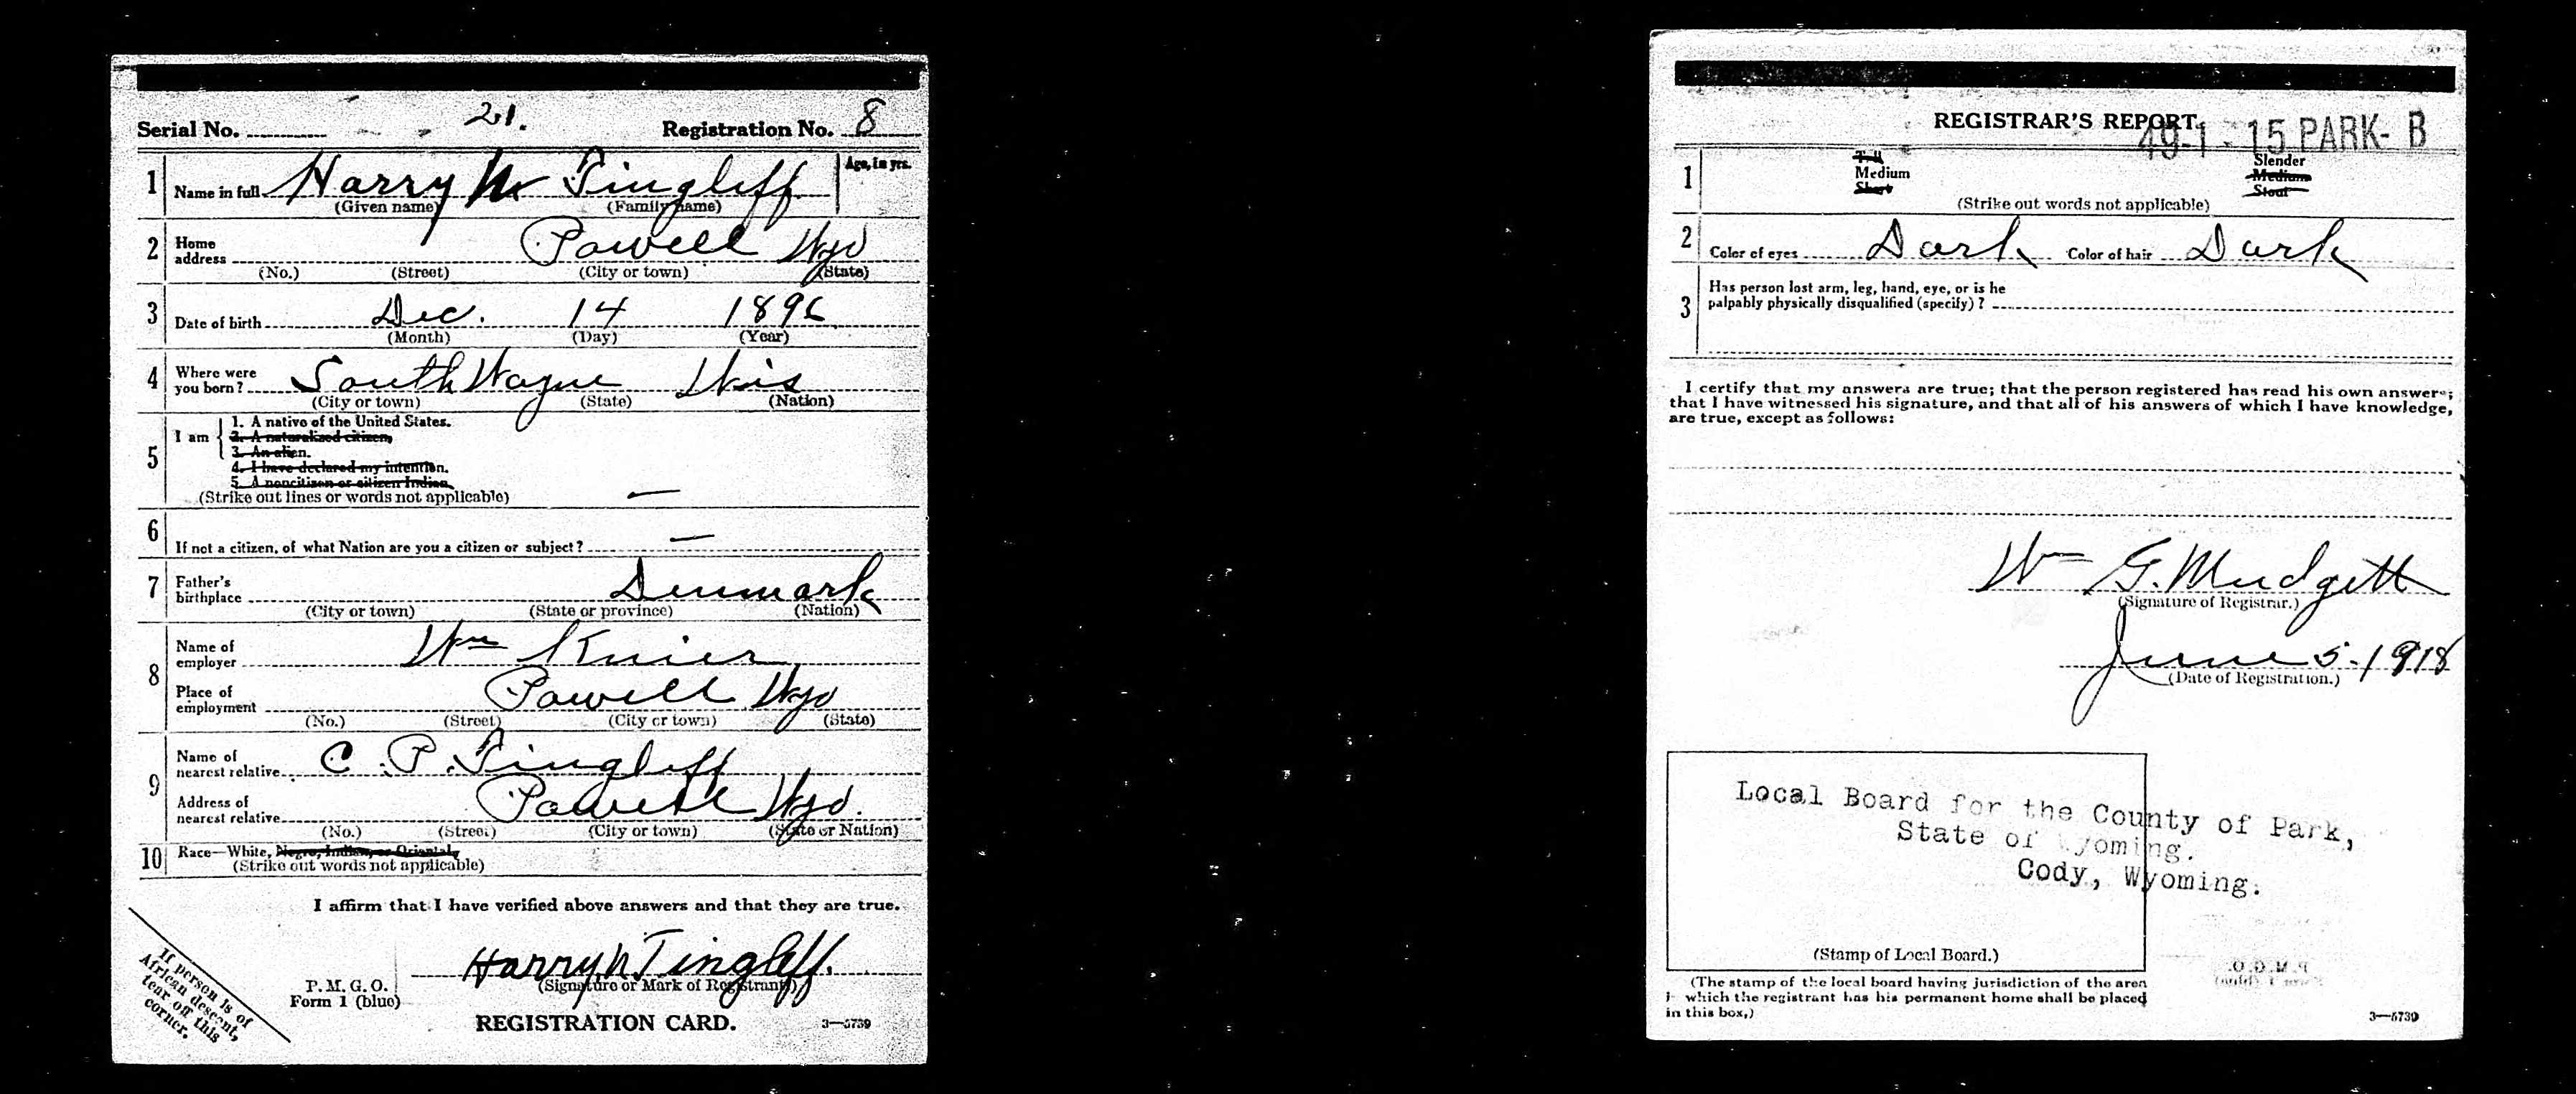 Serial No. 21. Registration No. 8
1 Name in full Harry N Tingleff Age, in yrs.
(Given name) (Family name)
2 Home address Powell Wyo
(No.) (Street) (City or town) (State)
3 Date of birth Dec. 14 1896
(Month) (Day) (Year)
4 Where were you born? South Wayne Wis
(City or town) (State) (Nation)
5 I am
1. A native of the United States.
2. A naturalized citizen,
3. An alien.
4. I have declared my intention.
5. A noncitizen or citizen Indian
(Strike out lines or words not applicable)
6 If not a citizen, of what Nation are you a citizen or subject? —
7 Father's birthplace Denmark
(City or town) (State or province) (Nation)
8 Name of employer Wm Knier
Place of employment Powell Wyo
(No.) (Street) (City or town) (State)
9 Name of nearest relative C. P. Tingleff
Address of nearest relative Powell Wyo.
(No.) (Street) (City or town) (State or Nation)
10 Race—White, Negro, Indian, or Oriental,
(Strike out words not applicable)
I affirm that I have verified above answers and that they are true.
Harry N Tingleff.
(Signature or Mark of Registrant)
P. M. G. O.
Form 1 (blue)
REGISTRATION CARD. 3—5739
If person is of
African descent,
tear off this
corner.
REGISTRAR'S REPORT
49-1-15 PARK-B
1 Tall Slender
Medium Medium
Short Stout
(Strike out words not applicable)
2 Color of eyes Dark Color of hair Dark
3 Has person lost arm, leg, hand, eye, or is he
palpably physically disqualified (specify)?
I certify that my answers are true; that the person registered has read his own answers;
that I have witnessed his signature, and that all of his answers of which I have knowledge,
are true, except as follows:
Wm G. Mudgett
(Signature of Registrar.)
June 5-1918
(Date of Registration.)
Local Board for the County of Park,
State of Wyoming.
Cody, Wyoming.
(Stamp of Local Board.)
P. M. G. O.
Form 1 (blue)
(The stamp of the local board having jurisdiction of the area
in which the registrant has his permanent home shall be placed
in this box.)
3—5739